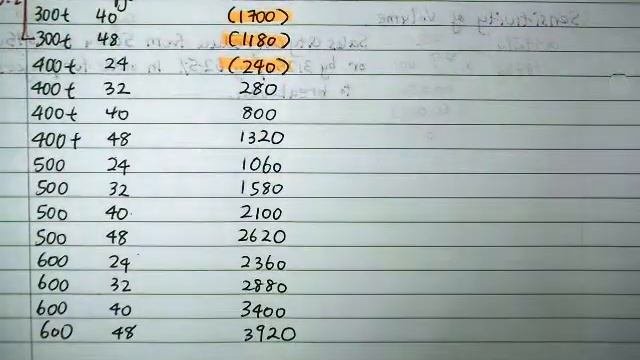 300t 40 (1700)
300t 48 (1180)
400t 24 (240)
400t 32 280
400t 40 800
400t 48 1320
500 24 1060
500 32 1580
500 40 2100
500 48 2620
600 24 2360
600 32 2880
600 40 3400
600 48 3920
Sensitivity of volume